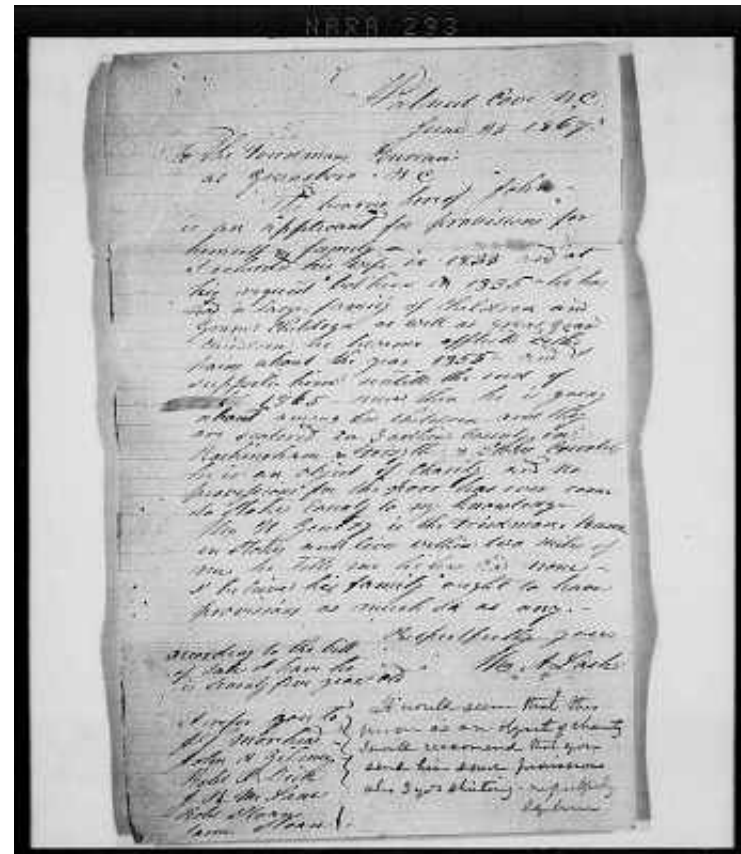 NARA 293
Walnut Cove N.C.
June 24 1867.
To the Freedmans Bureau
at Greensboro N C
The bearer hereof John
is an applicant for provisions for
himself & family
I his wife in 1833 and at
his request him in 1835 he has
had a large family of Children and
Grand Children as well as great grand
Children he became afflicted with
about the year 1855 and I
supported him untill the end of
1865 since then he is going
about among his children and they
are scattered in County, in
Rockingham & Forsyth & Stokes Counties
he is an object of Charity and no
provisions for the poor has ever come
to Stokes County to my knowledge
Wm H Gentry is the Freedmans Bureau
in Stokes and live within two miles of
me he tells me he has none
I believe his family ought to have
provisions as much so as any.
Respectfully yours
Wm A Lash
according to the bill
of sale I have he
is seventy five years old
I refer you to
Morehead
John A Gilmer
Robt P. Dick
J R McLean
Robt
Sloan
It would seem that this
person is an object of charity
I would recommend that you
send him some provisions
also 3 yds shirting - respectfully